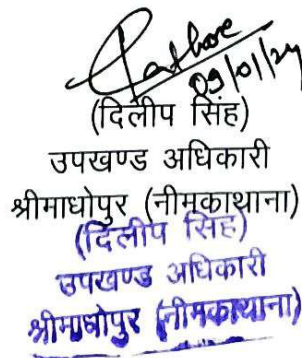 Rathore
09/01/24
(दिलीप सिंह)
उपखण्ड अधिकारी
श्रीमाधोपुर (नीमकाथाना)
(दिलीप सिंह)
उपखण्ड अधिकारी
श्रीमाधोपुर (नीमकाथाना)